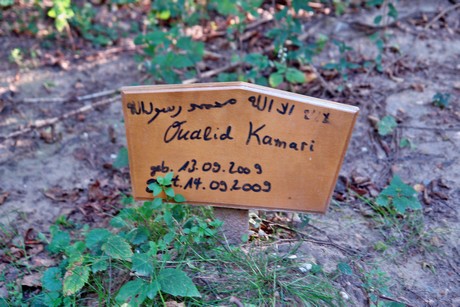 لا اله الا الله محمد رسول الله
Oualid Kamari
geb. 13.09.2009
t. 14.09.2009